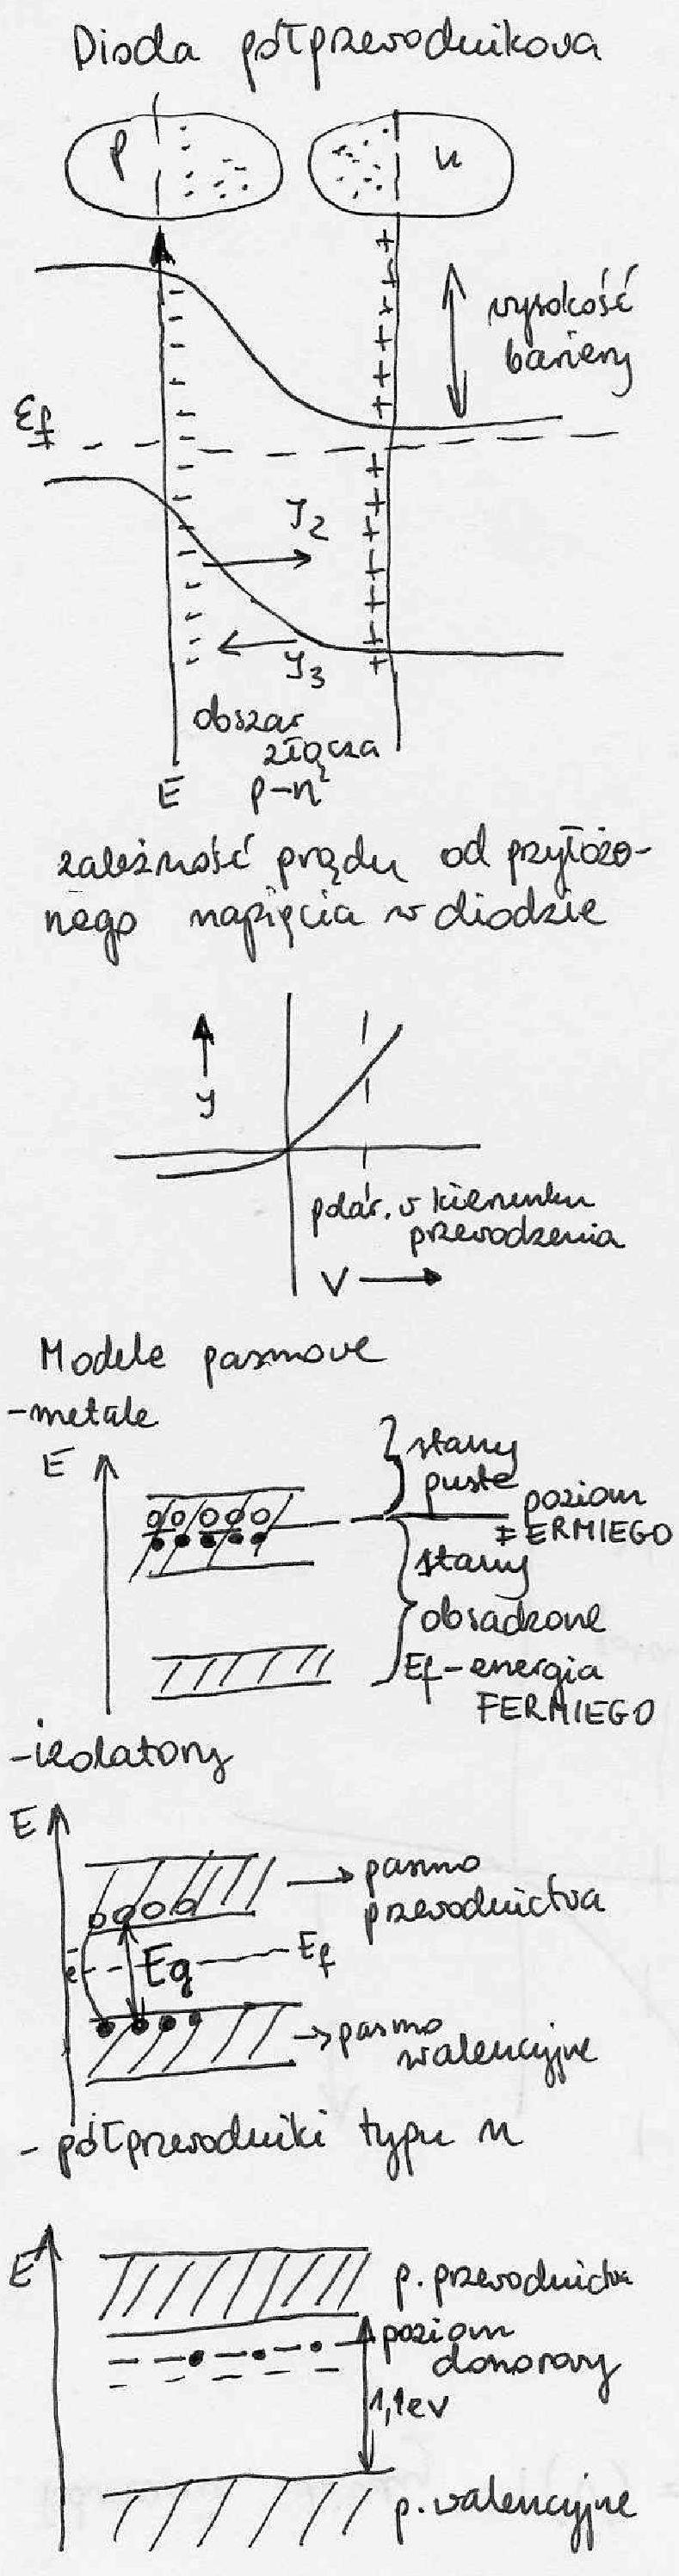 Dioda półprzewodnikowa
p n
+
+
+
+
+
+
wysokość
bariery
εf
+
+
+
+
+
+
+
J2
J3
obszar
złącza
p-n
E
zależność prądu od przyło­żo-
nego napięcia w diodzie
J
polar. w kierunku
przewodzenia
V
Modele pasmowe
-metale
E
stany
puste
poziom
FERMIEGO
stany
obsadzone
Ef-energia
FERMIEGO
-izolatory
E
pasmo
przewodnictwa
Ef
Eg
pasmo
walencyjne
- półprzewodniki typu n
E
p. przewodnictwa
poziom
donorowy
1,1eV
p. walencyjne